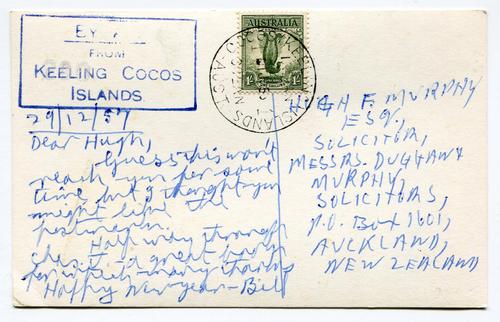 BY
FROM
KEELING COCOS
ISLANDS
AUSTRALIA
1/-
COCOS KEELING ISLANDS AUST
29/12/57
Dear Hugh,
Guess this won't
reach you for some
time but I thought you
might like the
postmark.
Half way through
a great book
for which many thanks
Happy New year - Bill
HUGH F. MURPHY
ESQ.,
SOLICITOR,
MESSRS. DUTHAY &
MURPHY,
SOLICITORS,
P.O. BOX 1601,
AUCKLAND,
NEW ZEALAND